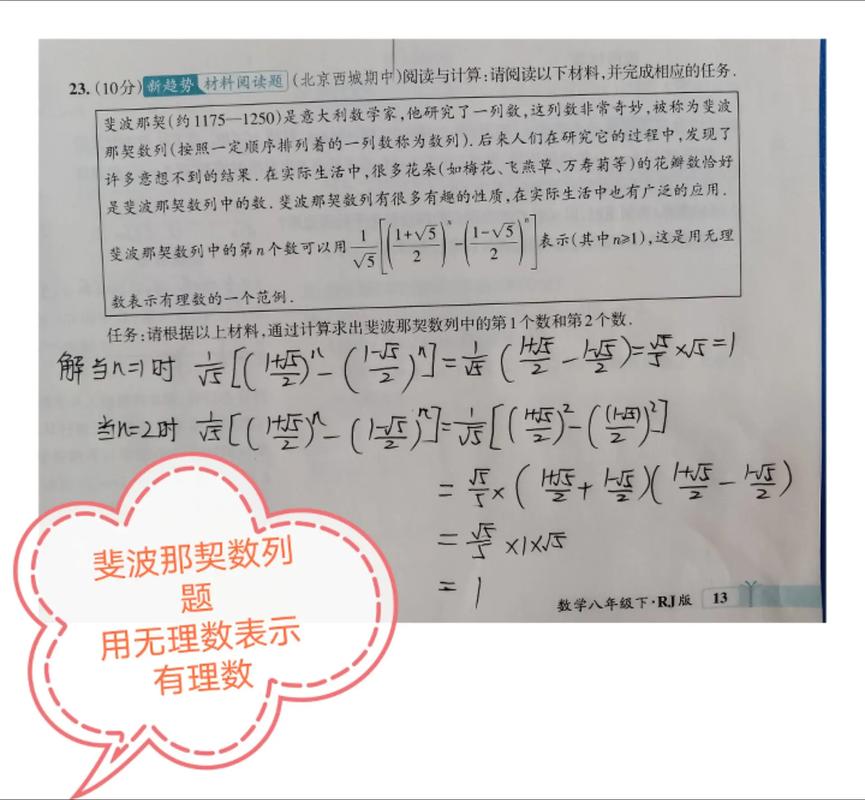 23.(10分) 新趋势 材料阅读题 (北京西城期中)阅读与计算:请阅读以下材料,并完成相应的任务.
斐波那契(约1175—1250)是意大利数学家,他研究了一列数,这列数非常奇妙,被称为斐波
那契数列(按照一定顺序排列着的一列数称为数列).后来人们在研究它的过程中,发现了
许多意想不到的结果.在实际生活中,很多花朵(如梅花、飞燕草、万寿菊等)的花瓣数恰好
是斐波那契数列中的数.斐波那契数列有很多有趣的性质,在实际生活中也有广泛的应用.
斐波那契数列中的第n个数可以用 1/√5[((1+√5)/2)^n-((1-√5)/2)^n] 表示(其中n≥1),这是用无理
数表示有理数的一个范例.
任务:请根据以上材料,通过计算求出斐波那契数列中的第1个数和第2个数.
解当n=1时 1/√5[((1+√5)/2)^n-((1-√5)/2)^n]=1/√5((1+√5)/2-(1-√5)/2)=√5/5×√5=1
当n=2时 1/√5[((1+√5)/2)^n-((1-√5)/2)^n]=1/√5[((1+√5)/2)^2-(((1-√5)/2)^2)]
=√5/5×((1+√5)/2+(1-√5)/2)((1+√5)/2-(1-√5)/2)
=√5/5×1×√5
=1
数学八年级下·RJ版 13
斐波那契数列
题
用无理数表示
有理数